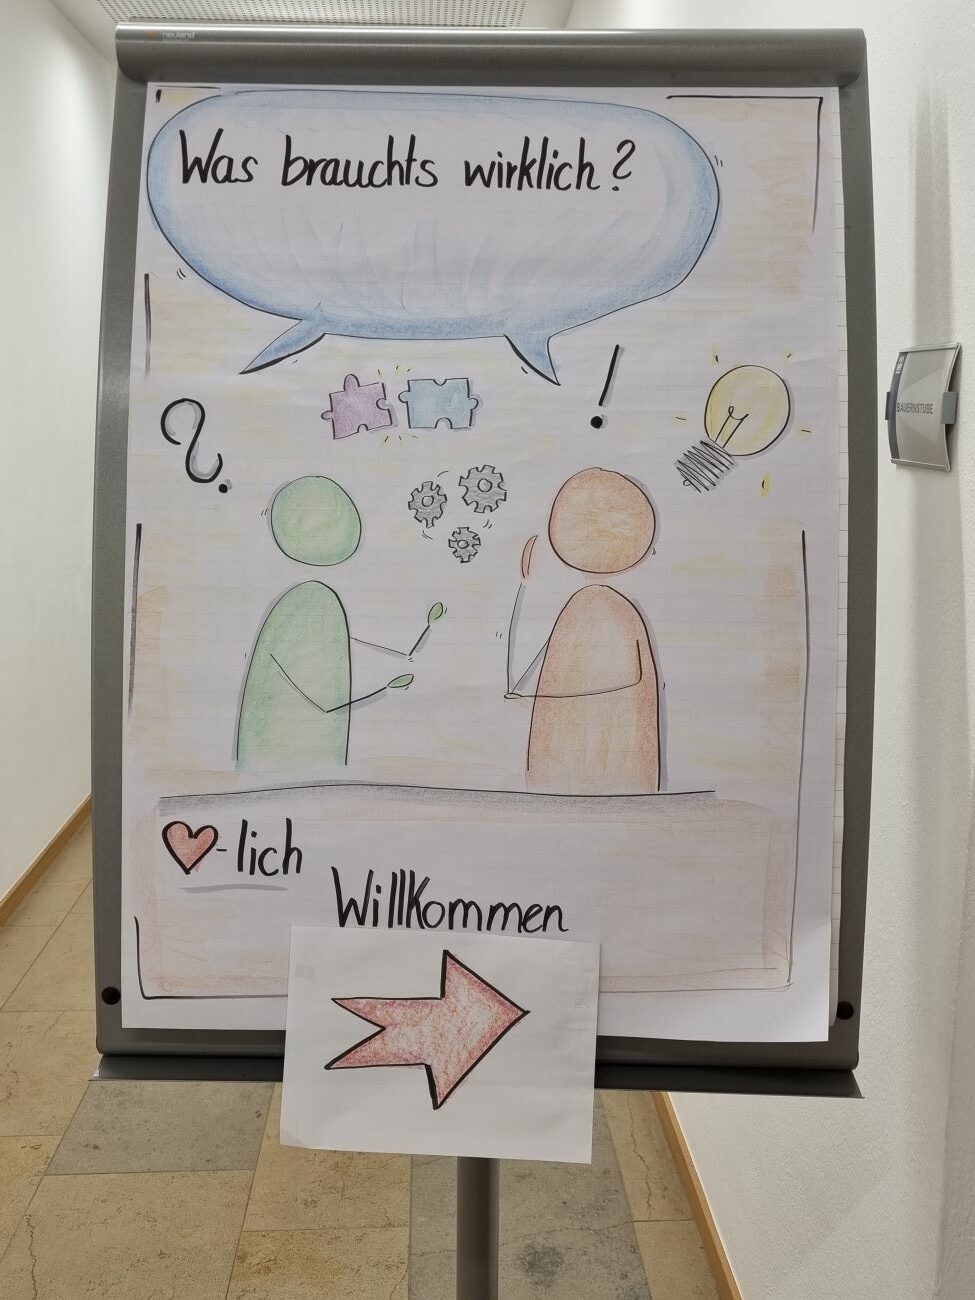 neuland
Was brauchts wirklich?
BAUERNSTUBE
-lich
Willkommen